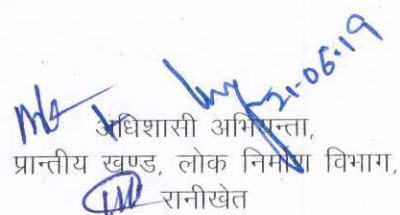 21-06-19
अधिशासी अभियन्ता,
प्रान्तीय खण्ड, लोक निर्माण विभाग,
रानीखेत